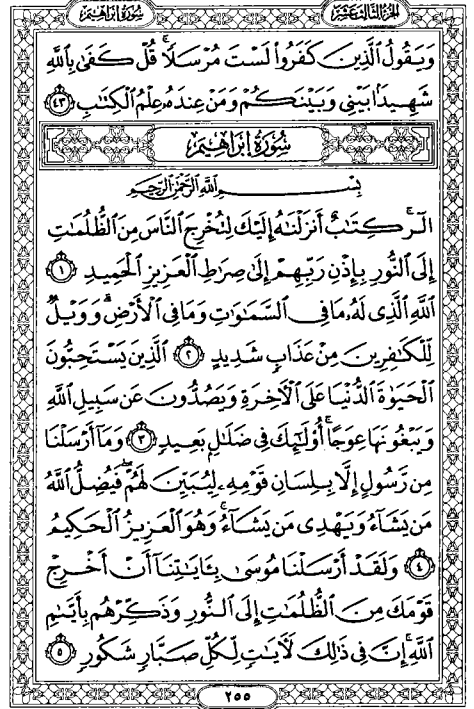 سُورَةُ إِبْرَاهِيمَ الجُزءُ الثَّالِثَ عَشَرَ
وَيَقُولُ الَّذِينَ كَفَرُوا لَسْتَ مُرْسَلًا ۚ قُلْ كَفَىٰ بِاللَّهِ
شَهِيدًا بَيْنِي وَبَيْنَكُمْ وَمَنْ عِندَهُ عِلْمُ الْكِتَابِ ٤٣
سُورَةُ إِبْرَاهِيمَ
بِسْمِ اللَّهِ الرَّحْمَٰنِ الرَّحِيمِ
الٓر ۚ كِتَابٌ أَنزَلْنَاهُ إِلَيْكَ لِتُخْرِجَ النَّاسَ مِنَ الظُّلُمَاتِ
إِلَى النُّورِ بِإِذْنِ رَبِّهِمْ إِلَىٰ صِرَاطِ الْعَزِيزِ الْحَمِيدِ ١
اللَّهِ الَّذِي لَهُ مَا فِي السَّمَاوَاتِ وَمَا فِي الْأَرْضِ ۗ وَوَيْلٌ
لِّلْكَافِرِينَ مِنْ عَذَابٍ شَدِيدٍ ٢ الَّذِينَ يَسْتَحِبُّونَ
الْحَيَوٰةَ الدُّنْيَا عَلَى الْآخِرَةِ وَيَصُدُّونَ عَن سَبِيلِ اللَّهِ
وَيَبْغُونَهَا عِوَجًا ۚ أُولَٰئِكَ فِي ضَلَالٍ بَعِيدٍ ٣ وَمَا أَرْسَلْنَا
مِن رَّسُولٍ إِلَّا بِلِسَانِ قَوْمِهِ لِيُبَيِّنَ لَهُمْ ۖ فَيُضِلُّ اللَّهُ
مَن يَشَاءُ وَيَهْدِي مَن يَشَاءُ ۚ وَهُوَ الْعَزِيزُ الْحَكِيمُ
٤ وَلَقَدْ أَرْسَلْنَا مُوسَىٰ بِآيَاتِنَا أَنْ أَخْرِجْ
قَوْمَكَ مِنَ الظُّلُمَاتِ إِلَى النُّورِ وَذَكِّرْهُم بِأَيَّىٰمِ
اللَّهِ ۚ إِنَّ فِي ذَٰلِكَ لَآيَاتٍ لِّكُلِّ صَبَّارٍ شَكُورٍ ٥
٢٥٥